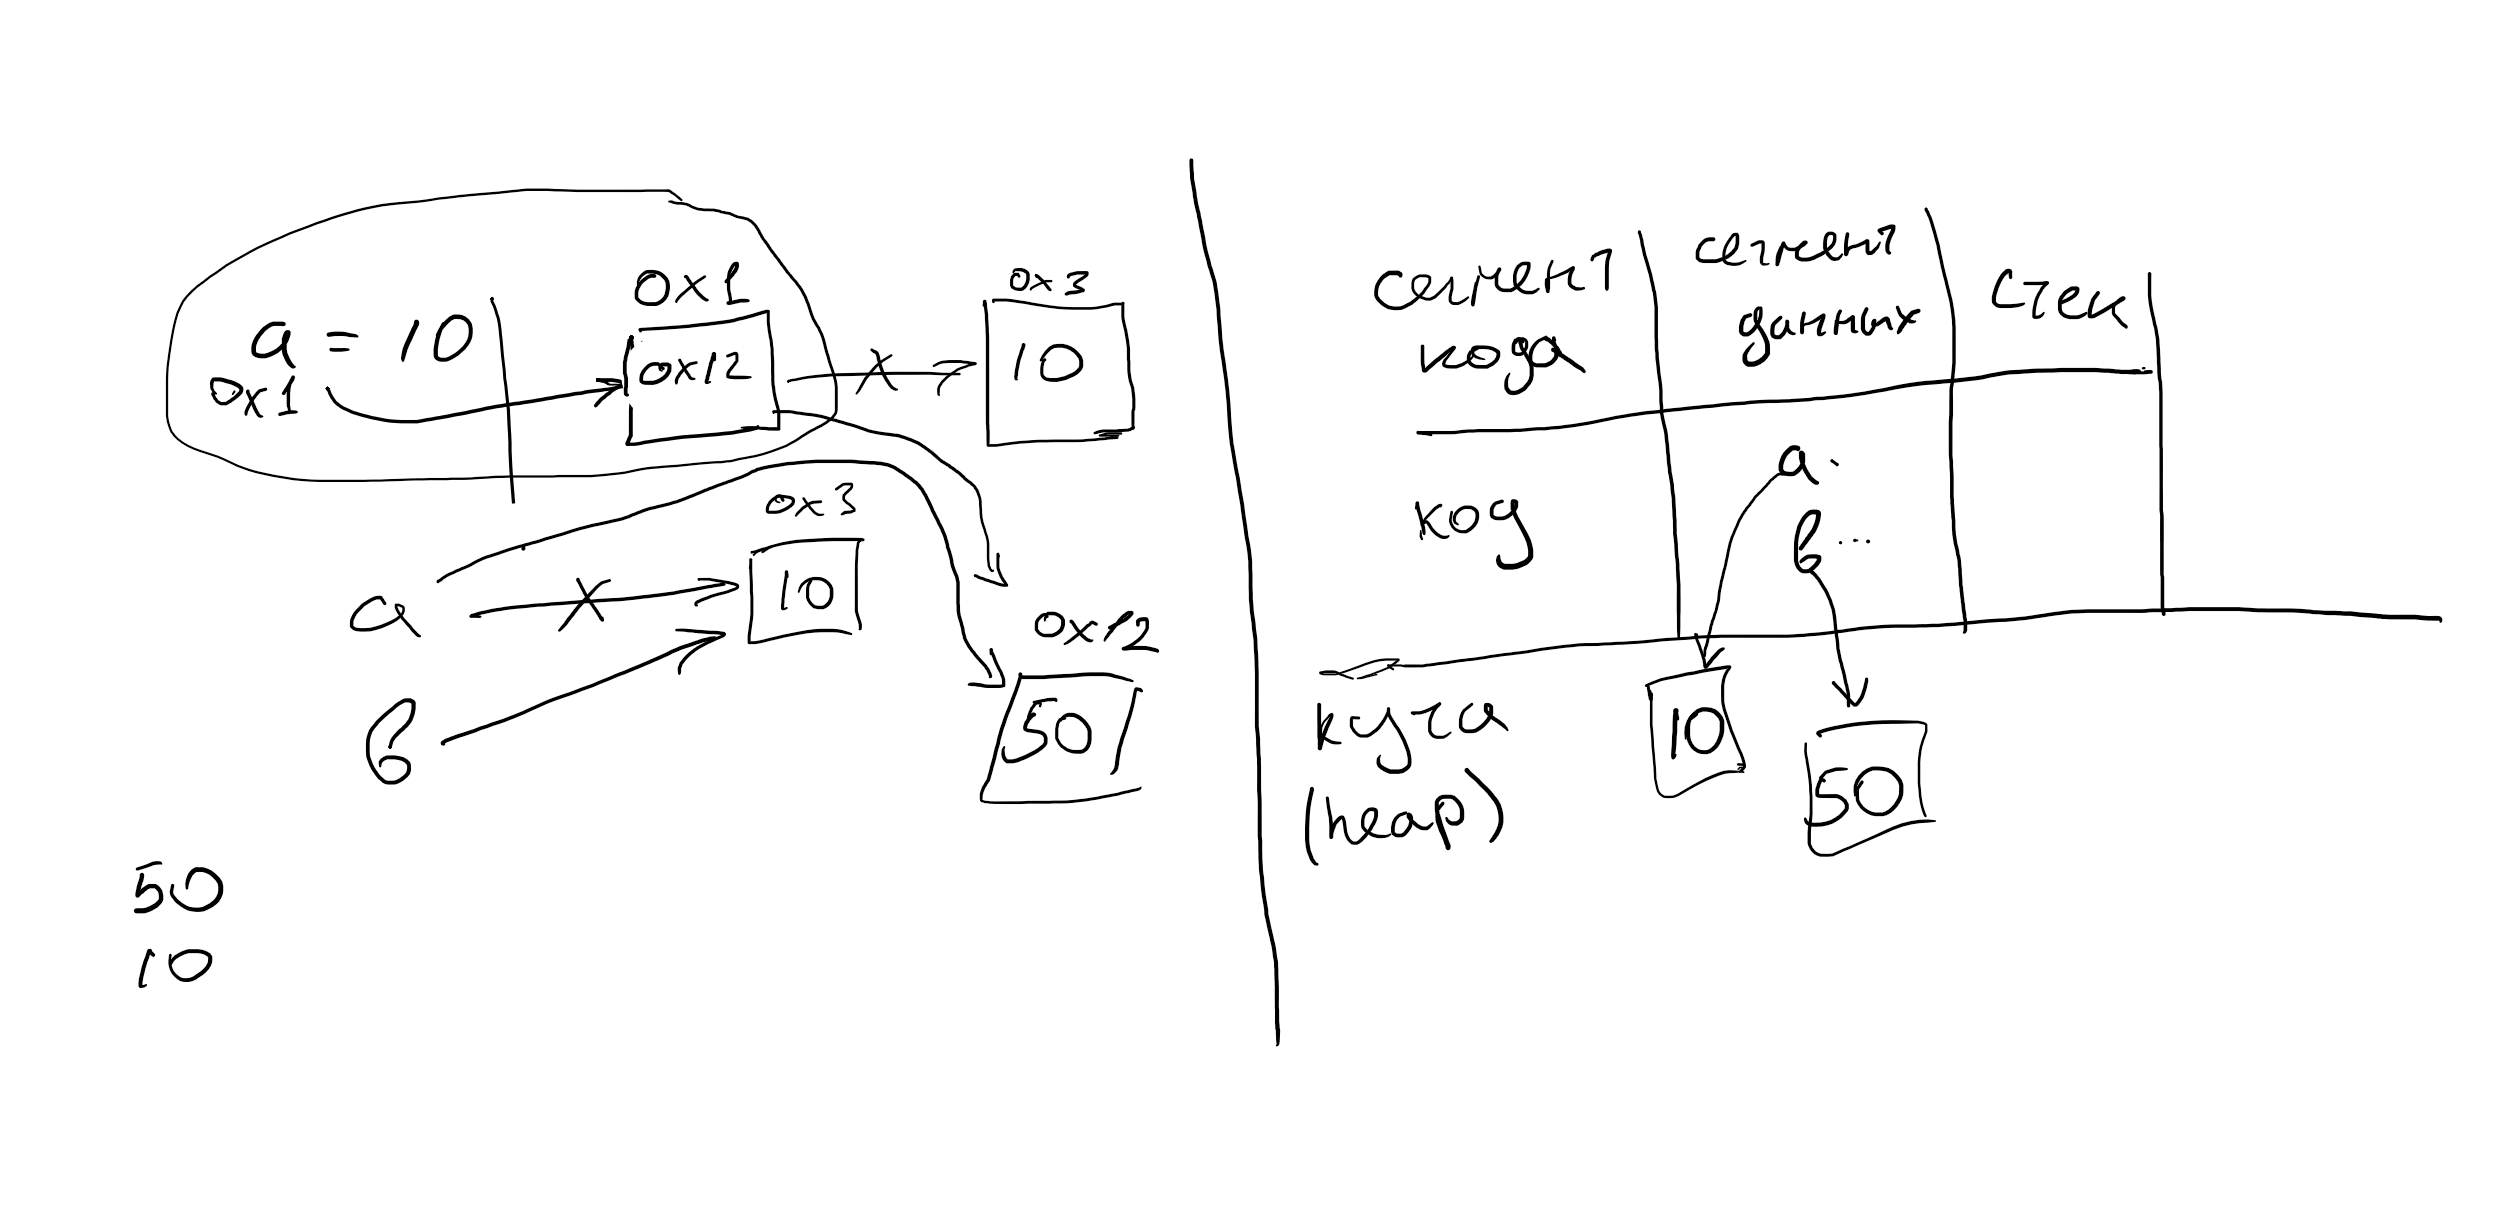 0x1
0x3
a = 10
0x1
0x12
10
0x3
a
10
0x2
50
б
50
10
сегмент
кода
сегмент
данных
стек
код
а.
б...
куча
(heap)
10
50